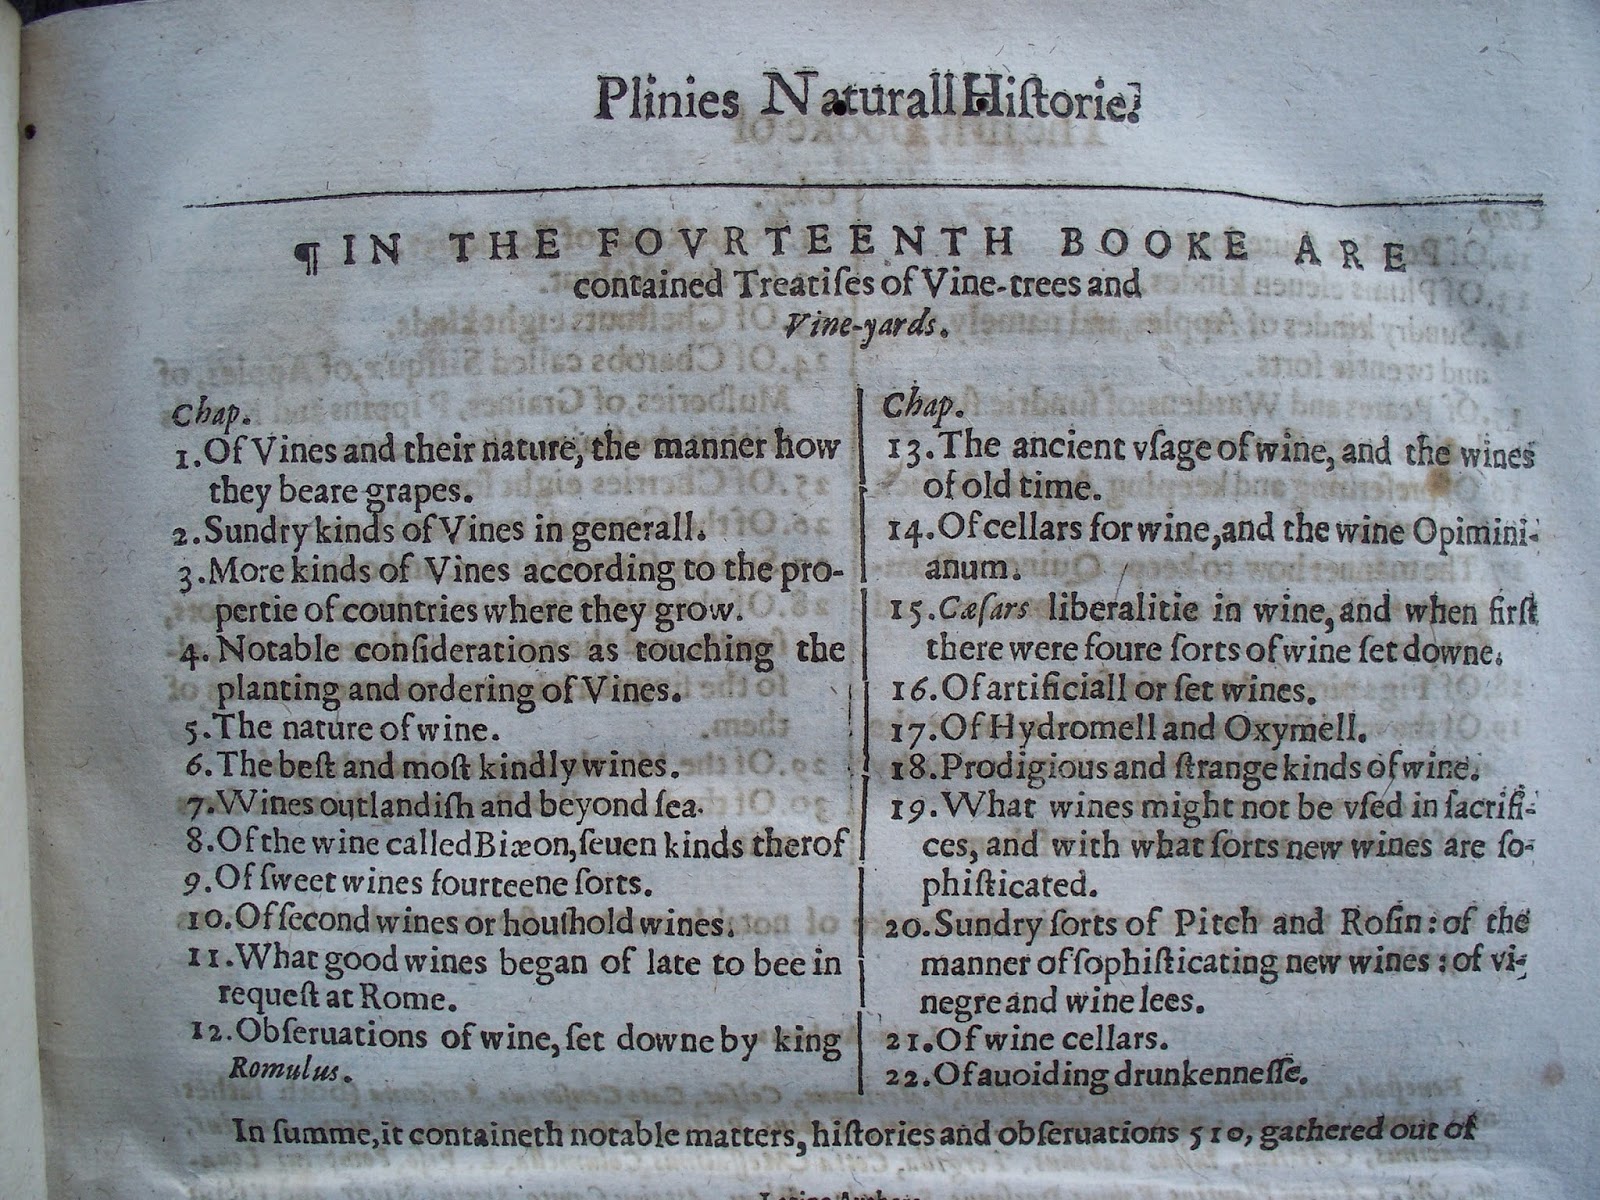 Plinies Naturall Hiſtorie.
¶ IN THE FOVRTEENTH BOOKE ARE
contained Treatiſes of Vine-trees and
Vine-yards.
Chap.
1. Of Vines and their nature, the manner how
they beare grapes.
2. Sundry kinds of Vines in generall.
3. More kinds of Vines according to the pro-
pertie of countries where they grow.
4. Notable conſiderations as touching the
planting and ordering of Vines.
5. The nature of wine.
6. The beſt and moſt kindly wines.
7. Wines outlandiſh and beyond ſea.
8. Of the wine called Biæon, ſeuen kinds therof
9. Of ſweet wines fourteene ſorts.
10. Of ſecond wines or houſhold wines.
11. What good wines began of late to bee in
requeſt at Rome.
12. Obſeruations of wine, ſet downe by king
Romulus.
Chap.
13. The ancient vſage of wine, and the wines
of old time.
14. Of cellars for wine, and the wine Opimini-
anum.
15. Cæſars liberalitie in wine, and when firſt
there were foure ſorts of wine ſet downe.
16. Of artificiall or ſet wines.
17. Of Hydromell and Oxymell.
18. Prodigious and ſtrange kinds of wine.
19. What wines might not be vſed in ſacrifi-
ces, and with what ſorts new wines are ſo-
phiſticated.
20. Sundry ſorts of Pitch and Roſin: of the
manner of ſophiſticating new wines: of vi-
negre and wine lees.
21. Of wine cellars.
22. Of auoiding drunkenneſſe.
In ſumme, it containeth notable matters, hiſtories and obſeruations 510, gathered out of